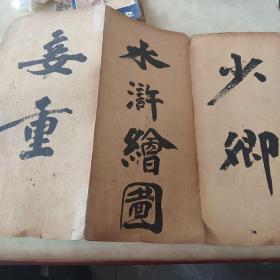 少卿
水滸繪圖
重